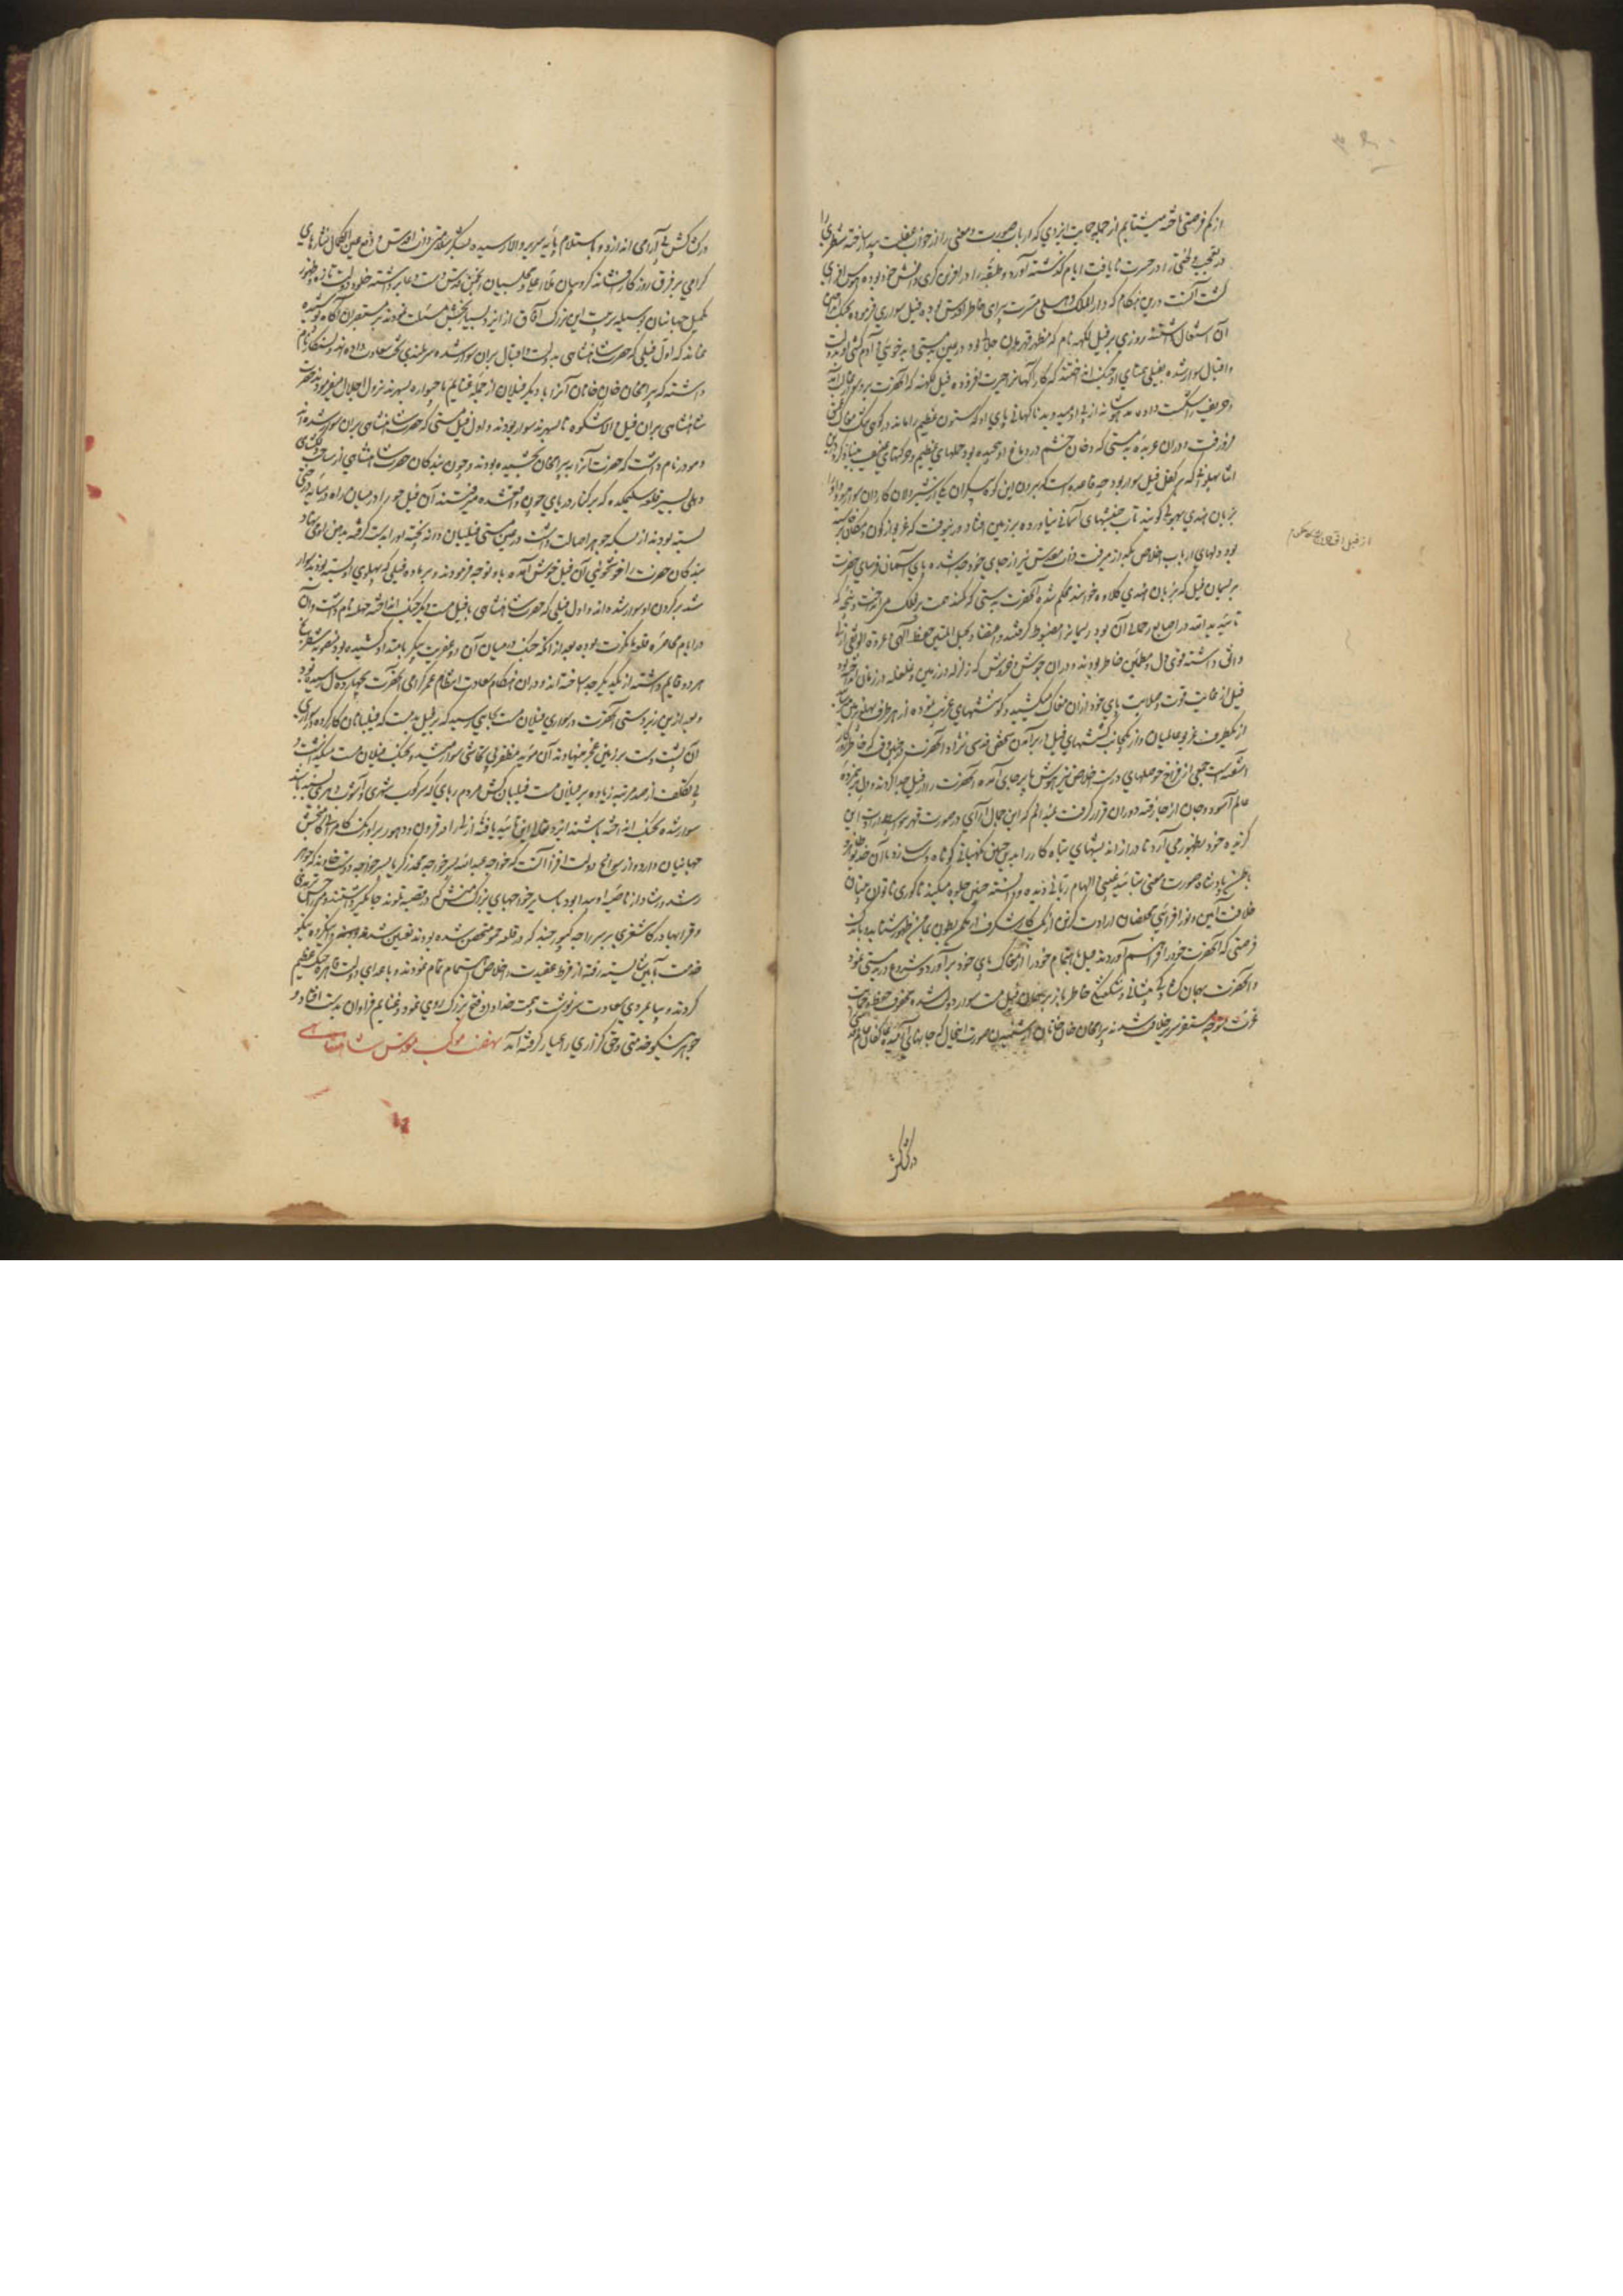 از کم فرصتی تاخته میشتابم از جمله عجایب ایزدی که ارباب صورت و معنی را از خواب غفلت بیدار ساخته شطری را
در تعجب و لختی را در حسرت نایافت ایام گذشته آورد و طبقه را در افزون کردن دانش خود بوده
گشت آنست درین هنگام که دار الملک دهلی مسرت پیرای خاطر اقدس بوده فیل سواری فرموده بجنگ انداختن
آن اشتغال داشتند روزی بر فیل لکهنه نام که مظهر قهرمان جلال بود در عین مستی و بدخوئی و آدم کشی او بدولت
و اقبال سوار شده بفیلی همتای او بجنگ انداختند که کارآگهانرا حیرت افزوده فیل لکهنه که آنحضرت برو سوار
حریف را شکست داده مدهوشانه از پی او میدوید ناگهانی پای او که ستون عظیم را ماند در گوی تنگ مغاک
فرو رفت و در آن عربده بدمستی که دخان خشم در دماغ او پیچیده بود حملهای عظیم و حرکتهای عنیف بنیاد کرد درین
اثنا پهلوانی که بر کفل فیل سوار بود چه قاعده است که برون این کوه پیکران یکی از شیردلان کاردان سوار
بزبان هندی بهوئی گویند تاب جنبشهای آسمانی نیاورده بر زمین افتاد
بود دلهای ارباب اخلاص بگداز میرفت ذات مقدس نیز از جای خود جدا شده پای آسمان فرسای حضرت
بریسمان فیل که بزبان هندی کلاوه خوانند محکم شده آنحضرت بدستی که کمند همت بر فلک می انداخت و پنجه که
تائید ید الله در اصابع رجای آن بود ریسمانرا مضبوط گرفتند و اعتضاد بحبل المتین حفظ الهی و عروة الوثقی
واثق داشته قوی دل و مطمئن خاطر بودند و در آن جوش و خروش که زلزله در زمین و غلغله در زمان انداخته بود
فیل از غایت قوت و صلابت پای خود ازان مغاک میکشید و کوششهای غریب نموده از هر طرف
از یکطرف غریو عالمیان و از یکجانب کششهای فیل در برآمدن شخص قدسی نژاد آنحضرت
آشفته است جمعی از فراخ حوصلهای درست اخلاص نیز هوش بر جای آمده آنحضرت را از فیل جدا کردند و دل پژمرده
عالم آسود و جان از جا رفته دوران قرار گرفت همانا که این جمال آرای در صورت قهر
گزیده خود بظهور می آرد تا دراز اندیشهای تباه کار را بدین چنین نگهبانی کوتاه دست سازد یا آن خدیو
باطن پادشاه صورت و معنی بتائید غیبی و الهام ربانی دیده و دانسته چنین جلوه میکند تا کوری ناتوان بینان
خلافت آئین و نور افزائی مخلصان ارادت گزین از یک کار شگرف از کتم بطون بمجمع ظهور شتابد و باندک
فرصتی که آنحضرت خود را فراهم آوردند فیل باهتمام خود را از مغاک پای خود برآورد و شروع در بدمستی نمود
و آنحضرت بهمان گشاده پیشانی و شگفتگی خاطر باز بر همان فیل مست سوار دولت شده محفوف حفظ و حمایت
عزت متوجه مستقر سریر خلافت شدند بیرامخان خان خانان از شنیدن صورت این حال که جانهای
در کشاکش
از فیل افتادن
در کشاکش بی آرامی اندازد و باستلام پایه سریر والا رسیده بشکر سلامتی ذات اقدس و دفع عین الکمال نثارهای
گرامی بر فرق روزگار افشانده کروبیان ملاء اعلی و مجلسیان انجمن قدس دست دعا برداشته خلود دولت تازه بظهور
تکمیل جهانیان بوسیله تربیت این بزرگ آفاق از ایزد بسیار بخش مسئلت نمودند بر مستفسران آگاه پوشیده
نماند که اول فیلی که حضرت شاهنشاهی بدولت و اقبال بران سوار شده سر بلندی تخت سعادت داده اند دلسنکار نام
داشته که بیرامخان خان خانان آنرا با دیگر فیلان از جمله غنایم با حیواره بسهرند نزول اجلال میفرمودند حضرت
شاهنشاهی بران فیل والا شکوه تا سهرند سوار بودند و اول فیل مستی که حضرت شاهنشاهی بران سوار شده اند
دمودر نام داشت که حضرت آنرا به بیرامخان بخشیده بودند و چون بندگان حضرت شاهنشاهی از ساحت دلکشای
دهلی بسیر قلعه سلیمگده که بر کنار دریای جون واقع شده میرفتند آن فیل خود را در میان راه در سایه درختی
بسته بودند از بسکه جوهر اصالت داشت در عین مستی فیلبان دانه پخته او را بدست گرفته بدهن او می نهاد
بندگان حضرت را خوشخوئی آن فیل خوش آمده باو توجه فرمودند و بر ماده فیلی که پهلوی او بسته بودند سوار
شده بر گردن او سوار شده اند و اول فیلی که حضرت شاهنشاهی با فیل مست دیگر جنگ انداخته جهله نام داشت و آن
در ایام محاصره قلعه مانکوت بوده بعد از آنکه جنگ در میان آن دو عفریت پیکر بامتداد کشیده بود
هر دو قایم داشته از یکدیگر جدا ساخته اند و در آن هنگام سعادت انتظام عمر گرامی آنحضرت بچهارده سال رسیده بود
و بعد ازین زبردستی آنحضرت در سواری فیلان مست بجایی رسید که بر فیل بدمست که فیلبانان کار کرده در سواری
آن پشت دست بر زمین عجز مینهادند آن مؤید مظفر بی تحاشی سوار میشد و بجنگ فیلان مست میگذاشت و
بی تکلف از صد مرتبه زیاده بر فیلان مست فیلبان کش مردم ربای که سرکوب شهری و آشوب لشکری باشد
سوار شده بجنگ انداخته باشند ایزد متعال این تائید یافته ازل را قرون و دهور بر اورنگ کامروائی و کام بخشی
جهانیان دارد و از سوانح دولت افزا آنست که خواجه عبدالله پسر خواجه محمد زکریا پسر خواجه دوست خاوند که جوهر
رشد و رشاد از ناصیه او پیدا بود با سایر خواجهای بزرگ منش که در قصبه تلونده جایگیر داشتند و میرزا حسن ترمذی
و قرابهادر کاشغری بر سر راجه کپور چند که در قلعه جمو متحصن شده بودند تعیین شد و این گروه نیکو
خدمت بآئین شایسته رفته از فرط عقیدت و اخلاص اهتمام تمام نمودند و با اعدای دولت قاهره جنگ عظیم
کردند و بیامردی سعادت سرنوشت و همت خداداد فتح بزرگ روی نمود و غنایم فراوان بدست افتاد و
جواهر نیکو خدمتی و حق گزاری را عیار گرفته آمد نهضت موکب مقدس شاهنشاهی